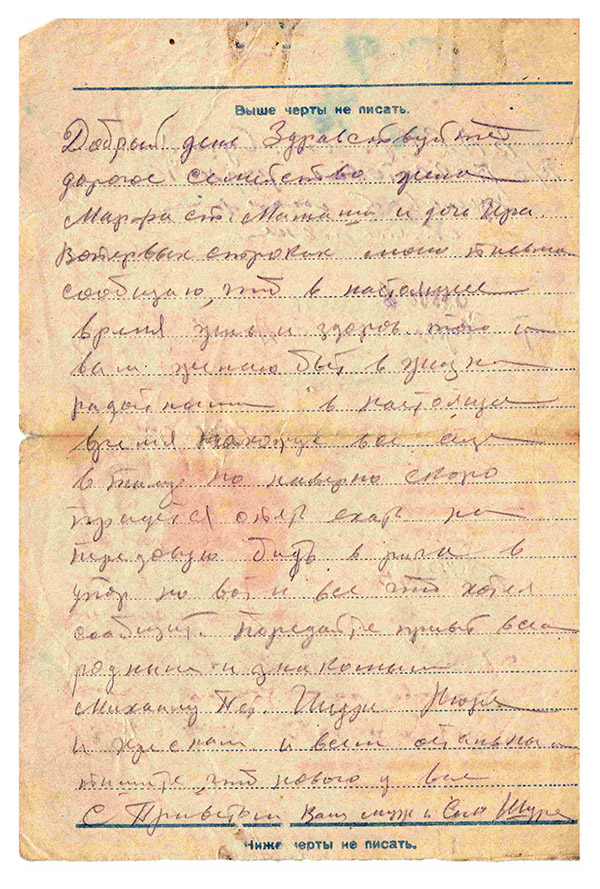 Выше черты не писать.
Добрый день Здравствуйте
дорогое семейство жена
Марфа ст. Маташи и дочь Ира.
Вопервых строках моего письма
сообщаю, что в настоящее
время жив и здоров того и
вам желаю быть в жизни
радостными в настояще
время нахожус все еще
в тылу но наверно скоро
придется опят ехат на
передовую бидь врага в
упор но вот и все что хотел
сообщит. Передайте привет всем
родным и знакомым
Михаилу Пет. Шуре Нюре
и и всем остальным
пишите, что нового у вас
С Приветом Ваш муж и Сын Шура
Ниже черты не писать.